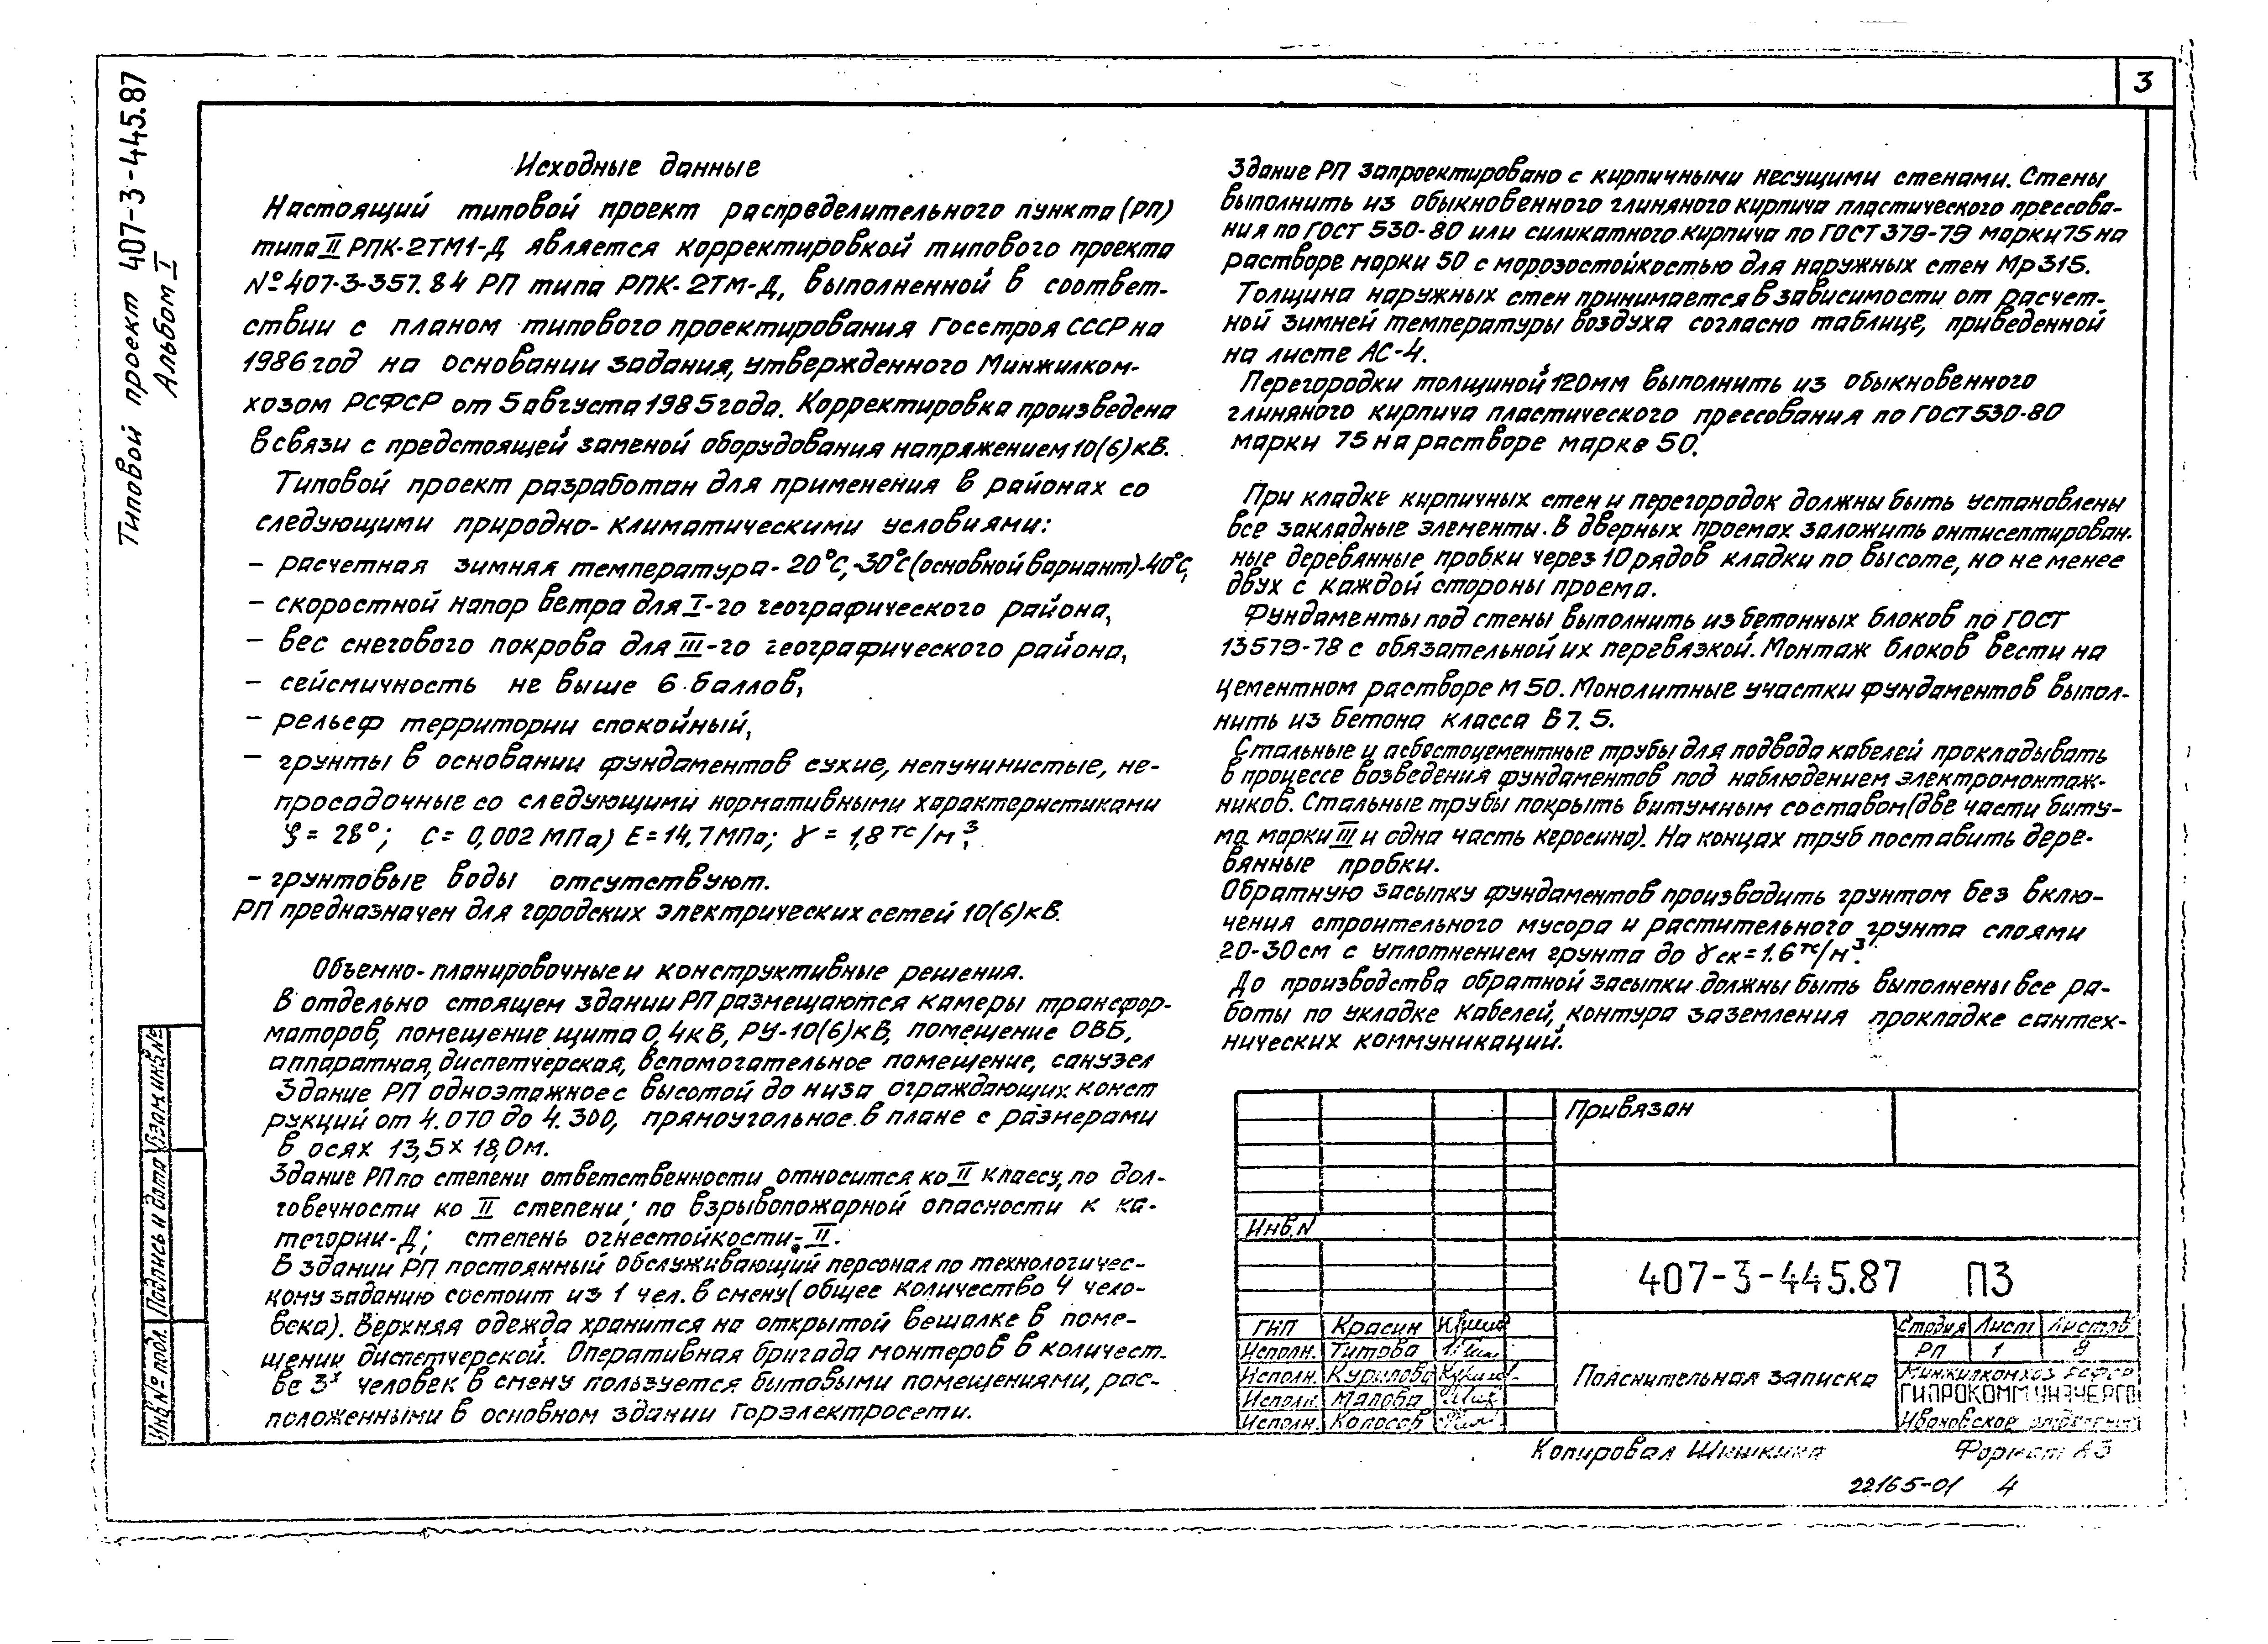 3
Типовой проект 407-3-445.87
Альбом I
Исходные данные
Настоящий типовой проект распределительного пункта (РП)
типа II РПК-2ТМ1-Д является корректировкой типового проекта
№407-3-357.84 РП типа РПК-2ТМ-Д, выполненной в соответ-
ствии с планом типового проектирования Госстроя СССР на
1986 год на основании задания, утвержденного Минжилком-
хозом РСФСР от 5 августа 1985 года. Корректировка произведена
в связи с предстоящей заменой оборудования напряжением 10(6)кВ.
Типовой проект разработан для применения в районах со
следующими природно-климатическими условиями:
- расчетная зимняя температура-20°С,-30°С(основной вариант)-40°С,
- скоростной напор ветра для I-го географического района,
- вес снегового покрова для III-го географического района,
- сейсмичность не выше 6 баллов,
- рельеф территории спокойный,
- грунты в основании фундаментов сухие, непучинистые, не-
просадочные со следующими нормативными характеристиками
φ = 28°; С = 0,002 МПа) Е = 14,7МПа; γ = 1,8 тс/м³.
- грунтовые воды отсутствуют.
РП предназначен для городских электрических сетей 10(6)кВ.
Объемно-планировочные и конструктивные решения.
В отдельно стоящем здании РП размещаются камеры трансфор-
маторов, помещение щита 0,4кВ, РУ-10(6)кВ, помещение ОВБ,
аппаратная, диспетчерская, вспомогательное помещение, санузел
Здание РП одноэтажное с высотой до низа ограждающих конст
рукций от 4.070 до 4.300, прямоугольное в плане с размерами
в осях 13,5×18,0м.
Здание РП по степени ответственности относится ко II классу, по дол-
говечности ко II степени; по взрывопожарной опасности к ка-
тегории-Д; степень огнестойкости-II.
В здании РП постоянный обслуживающий персонал по технологичес-
кому заданию состоит из 1 чел. в смену (общее количество 4 чело-
века). Верхняя одежда хранится на открытой вешалке в поме-
щении диспетчерской. Оперативная бригада монтеров в количест-
ве 3х человек в смену пользуется бытовыми помещениями, рас-
положенными в основном здании Горэлектросети.
Здание РП запроектировано с кирпичными несущими стенами. Стены
выполнить из обыкновенного глиняного кирпича пластического прессова-
ния по ГОСТ 530-80 или силикатного кирпича по ГОСТ 379-79 марки 75 на
растворе марки 50 с морозостойкостью для наружных стен Мрз15.
Толщина наружных стен принимается в зависимости от расчет-
ной зимней температуры воздуха согласно таблице, приведенной
на листе АС-4.
Перегородки толщиной 120мм выполнить из обыкновенного
глиняного кирпича пластического прессования по ГОСТ 530-80
марки 75 на растворе марке 50.
При кладке кирпичных стен и перегородок должны быть установлены
все закладные элементы. В дверных проемах заложить антисептирован-
ные деревянные пробки через 10 рядов кладки по высоте, но не менее
двух с каждой стороны проема.
Фундаменты под стены выполнить из бетонных блоков по ГОСТ
13579-78 с обязательной их перевязкой. Монтаж блоков вести на
цементном растворе М50. Монолитные участки фундаментов выпол-
нить из бетона класса В7.5.
Стальные и асбестоцементные трубы для подвода кабелей прокладывать
в процессе возведения фундаментов под наблюдением электромонтаж-
ников. Стальные трубы покрыть битумным составом (две части биту-
ма марки III и одна часть керосина). На концах труб поставить дере-
вянные пробки.
Обратную засыпку фундаментов производить грунтом без вклю-
чения строительного мусора и растительного грунта слоями
20-30см с уплотнением грунта до γск=1.6тс/м³.
До производства обратной засыпки должны быть выполнены все ра-
боты по укладке кабелей, контура заземления прокладке сантех-
нических коммуникаций.
Взам.инв.№
Подпись и дата
Инв.№подл.
Привязан
Инв.N
407-3-445.87 ПЗ
ГИП Красин
Исполн. Титова
Исполн. Курилова
Исполн. Малова
Исполн. Колосов
Пояснительная записка
Стадия Лист Листов
РП 1 8
Минжилкомхоз РСФСР
ГИПРОКОММУНЭНЕРГО
Ивановское отделение
Копировал Шишкина Формат А3
22165-01 4